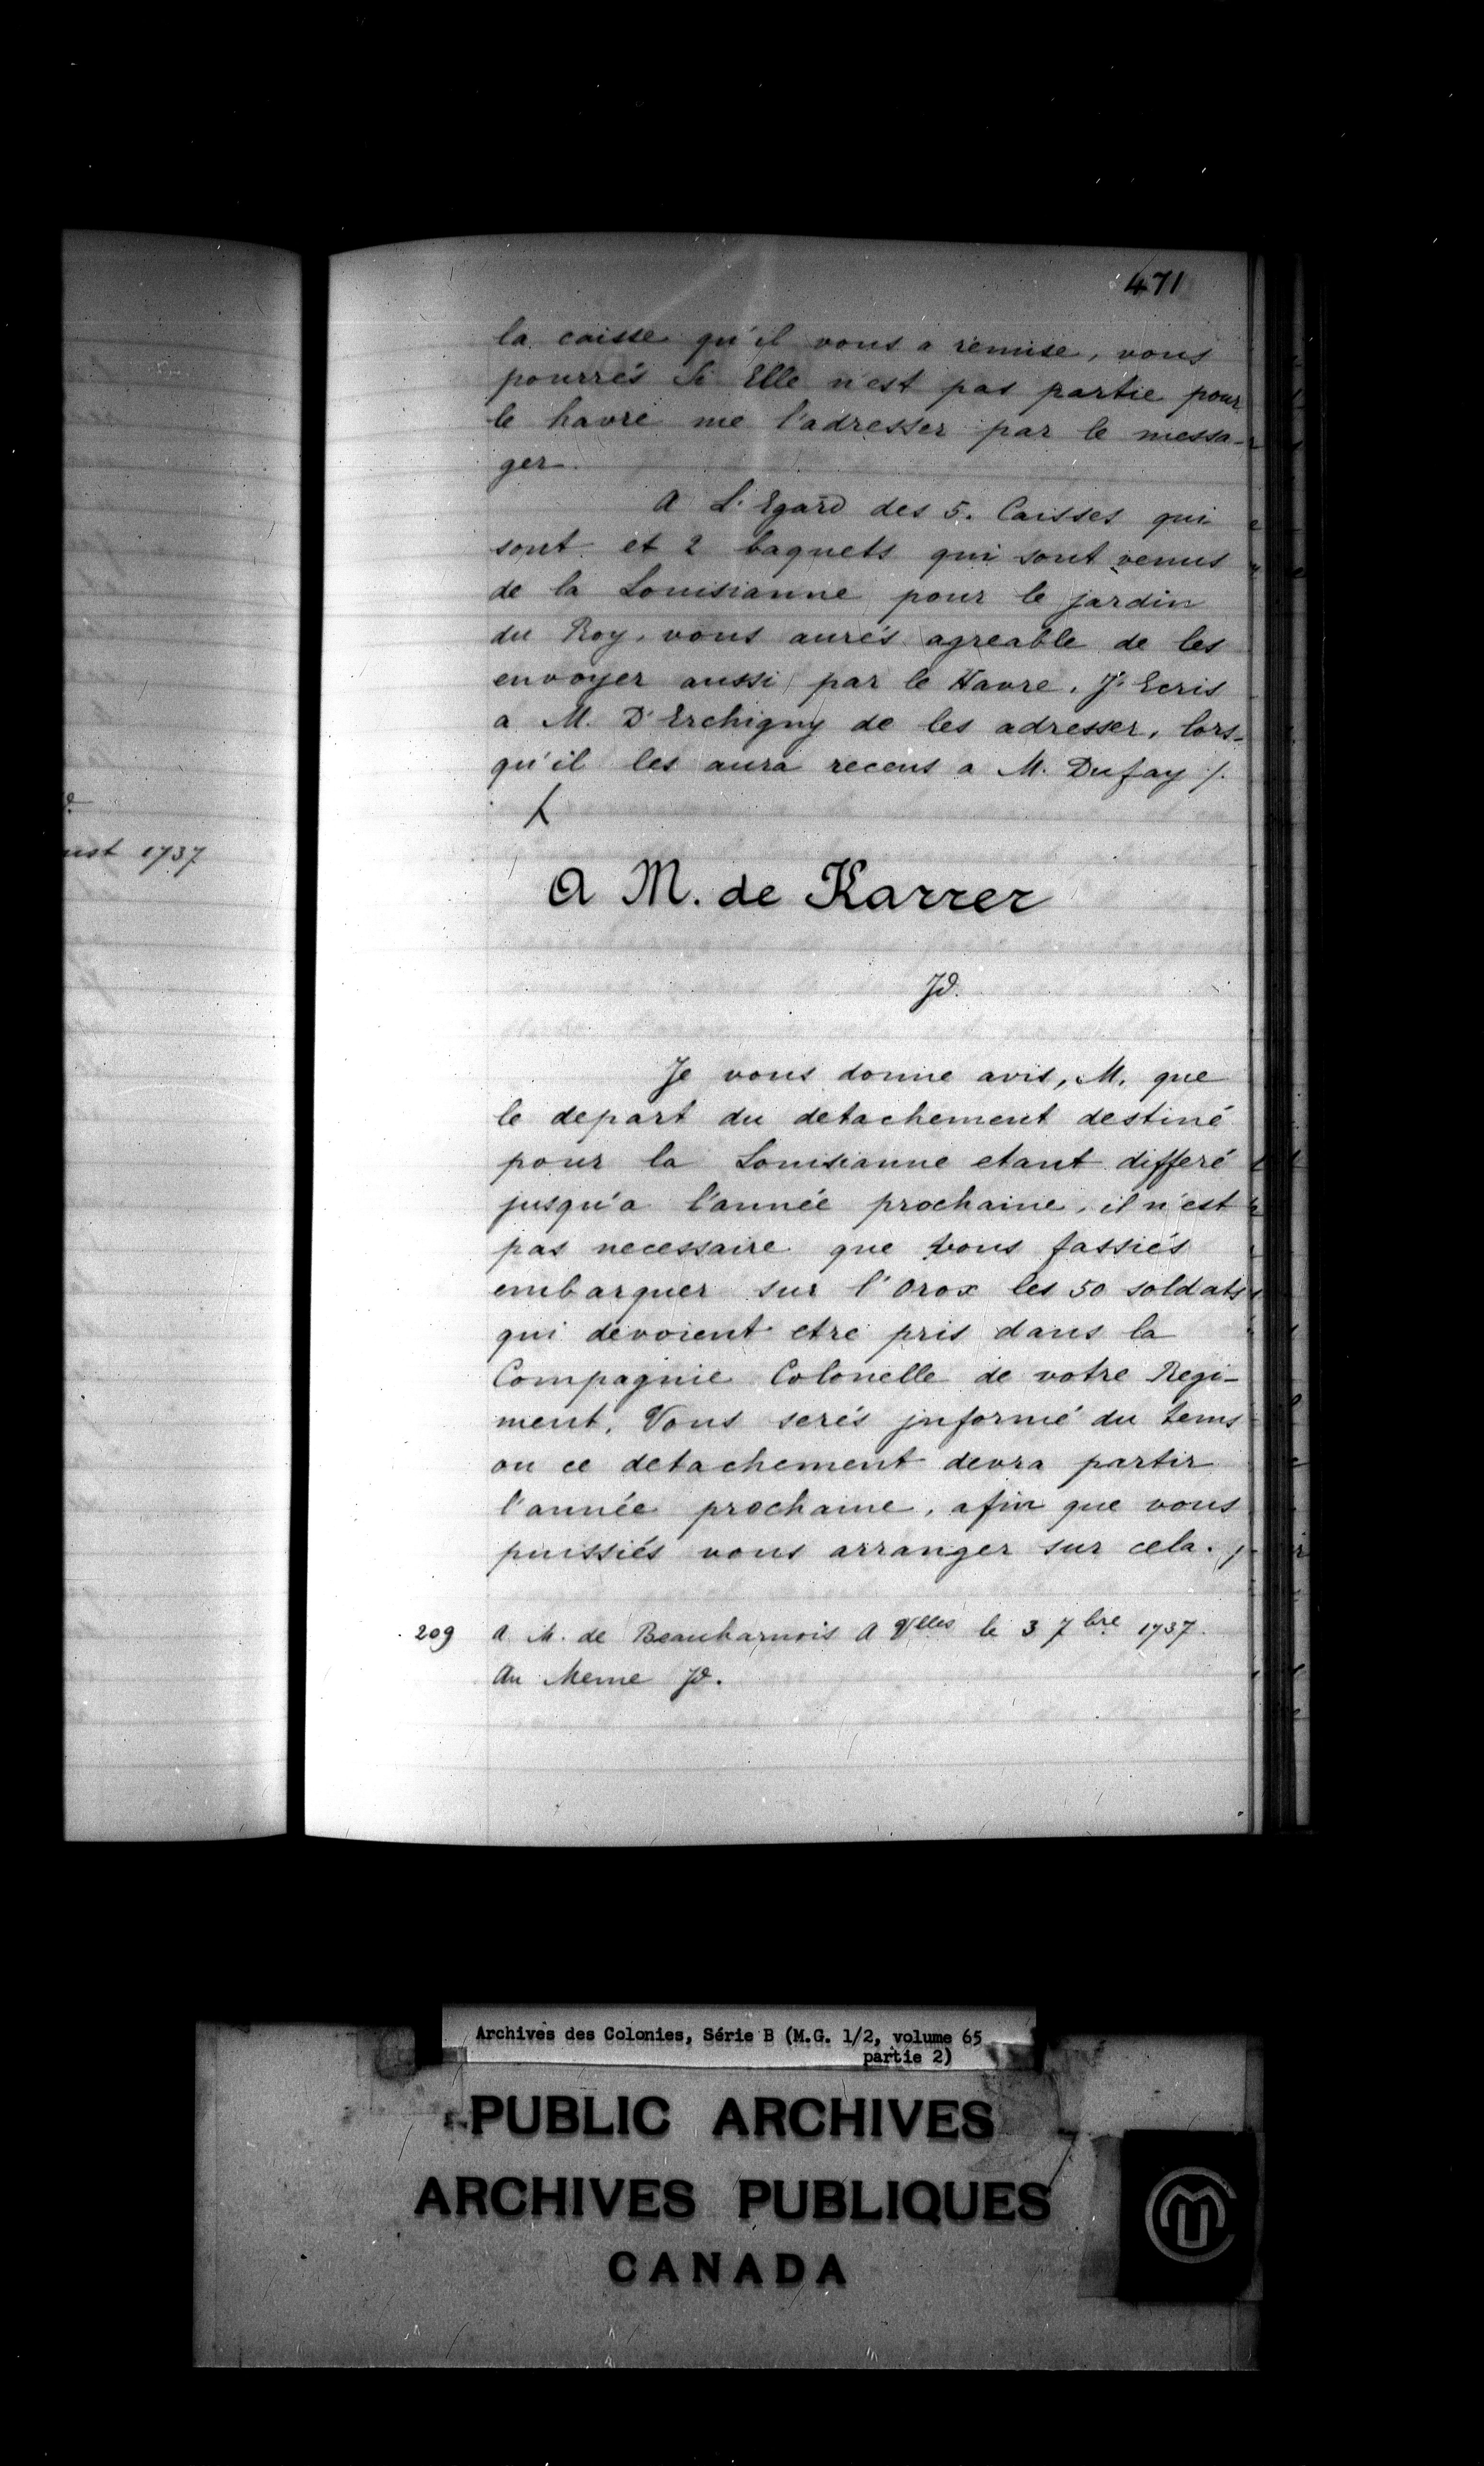 471
la caisse qu'il vous a remise, vous
pourrés Si Elle n'est pas partie pour
le havre me l'adresser par le messa-
ger
A L'Egard des 5. Caisses qui
sont et 2 baquets qui sont venus
de la Louisianne pour le jardin
du Roy, vous aurés agreable de les
envoyer aussi par le Havre. J'Ecris
a M. D'Erchigny de les adresser, lors-
qu'il les aura receus a M. Dufay /.
ust 1737
A M. de Karrer
Jd.
Je vous donne avis, M. que
le depart du detachement destiné
pour la Louisianne etant differé
jusqu'a l'année prochaine, il n'est
pas necessaire que vous fassiés
embarquer sur l'Orox les 50 soldats
qui devoient etre pris dans la
Compagnie Colonelle de votre Regi-
ment. Vous serés jnformé du tems
ou ce detachement devra partir
l'année prochaine, afin que vous
puissiés vous arranger sur cela. /
209 A M. de Beauharnois A Vlles le 3 7bre 1737.
Au Meme Jd.
Archives des Colonies, Série B (M.G. 1/2, volume 65
partie 2)
PUBLIC ARCHIVES
ARCHIVES PUBLIQUES
CANADA